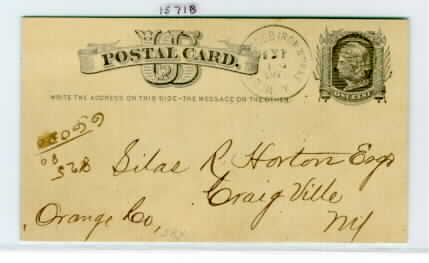 15718
POSTAL CARD.
U S
WRITE THE ADDRESS ON THIS SIDE - THE MESSAGE ON THE OTHER
ONE CENT
Silas R. Horton Esq
Craig Ville
Orange Co, NY